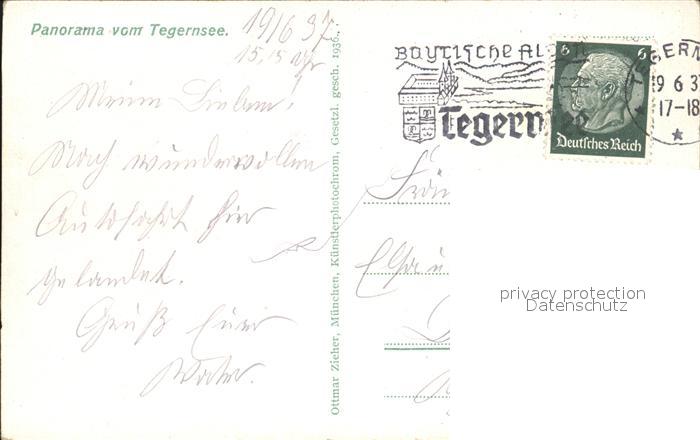 Panorama vom Tegernsee.
19/6 37
15,15 Uhr
Meine Lieben!
Nach wundervollen
Autofahrt hier
gelandet.
Gruß Euer
Vater.
Ottmar Zieher, München, Künstlerphotochrom, Gesetzl. gesch. 1936.
Bayrische Al
Tegernsee
6 6
Deutsches Reich
TEGERN
19 6 3
17-18
Elsa u
privacy protection
Datenschutz